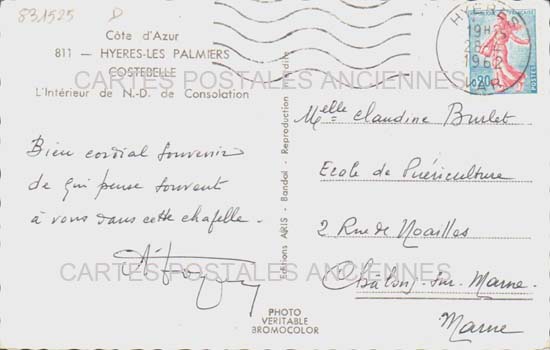 831525 D
Côte d'Azur
811 — HYERES-LES PALMIERS
COSTEBELLE
L'Intérieur de N.-D. de Consolation
CARTES POSTALES ANCIENNES
Bien cordial souvenir
de qui pense souvent
à vous dans cette chapelle.
CARTES POSTALES ANCIENNES
PHOTO
VERITABLE
BROMOCOLOR
Editions ARIS - Bandol - Reproduction interdite
HYERES
19H
28
1962
VAR
FRANÇAISE
0,20
POSTES
Melle Claudine Burlet
Ecole de Puériculture
2 Rue de Noailles
Chalons-sur-Marne
Marne